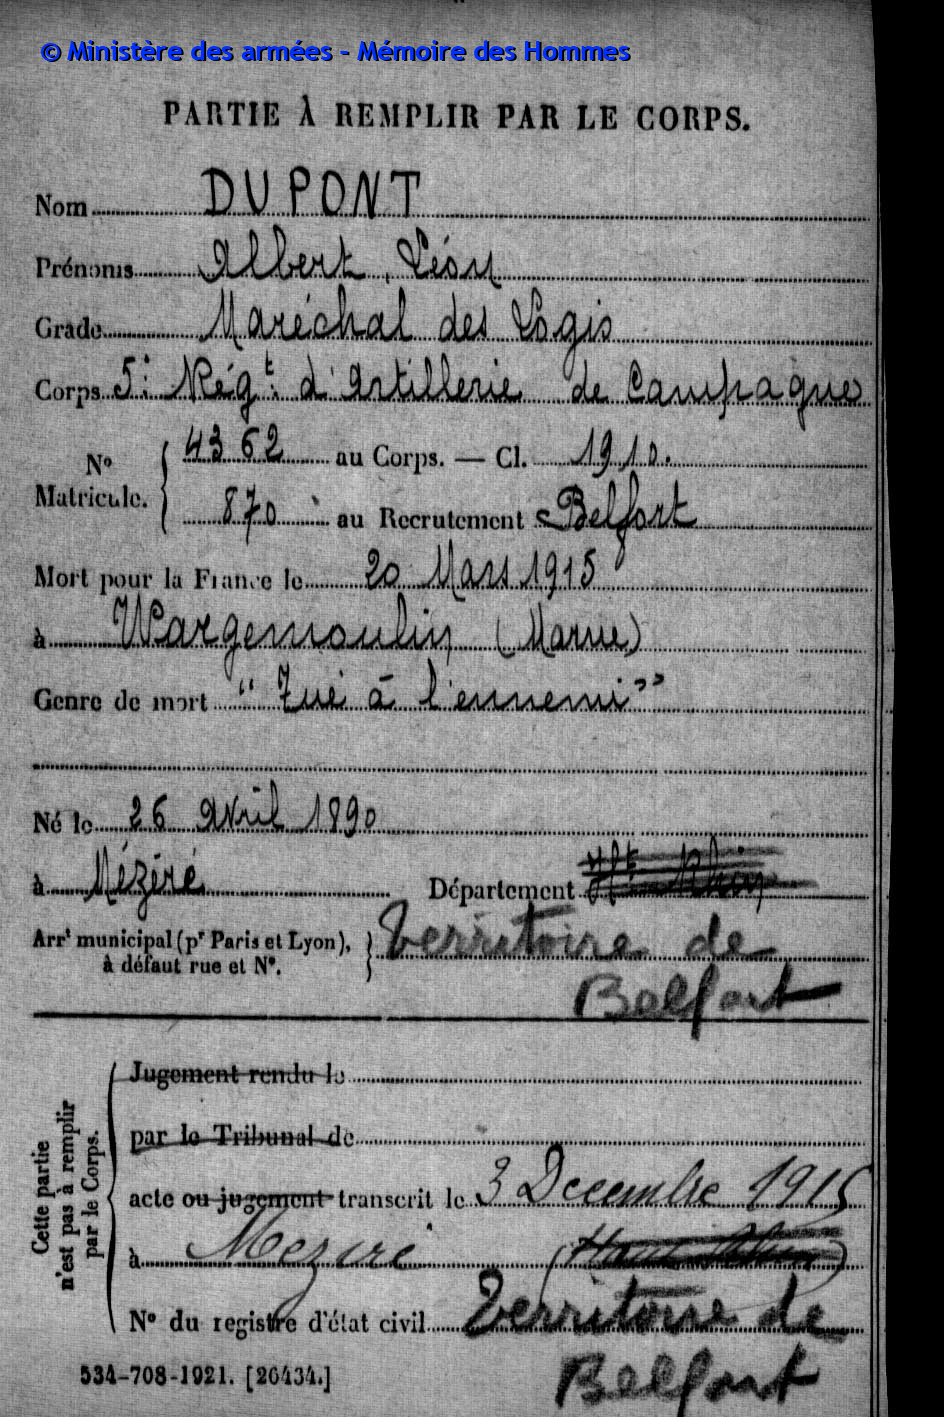 © Ministère des armées - Mémoire des Hommes
PARTIE À REMPLIR PAR LE CORPS.
Nom DUPONT
Prénoms Albert, Léon
Grade Maréchal des Logis
Corps 5e Régt d'Artillerie de Campagne
No Matricule. { 4362 au Corps. — Cl. 1910.
870 au Recrutement Belfort
Mort pour la France le 20 Mars 1915
à Wargemoulin (Marne)
Genre de mort "Tué à l'ennemi"
Né le 26 Avril 1890
à Méziré Département Ht Rhin
Arrt municipal (pr Paris et Lyon), à défaut rue et No. } Territoire de
Belfort
Cette partie n'est pas à remplir par le Corps.
Jugement rendu le
par le Tribunal de
acte ou jugement transcrit le 3 Decembre 1915
à Meziré (Haut Rhin)
No du registre d'état civil Territoire de
Belfort
534-708-1921. [26434.]